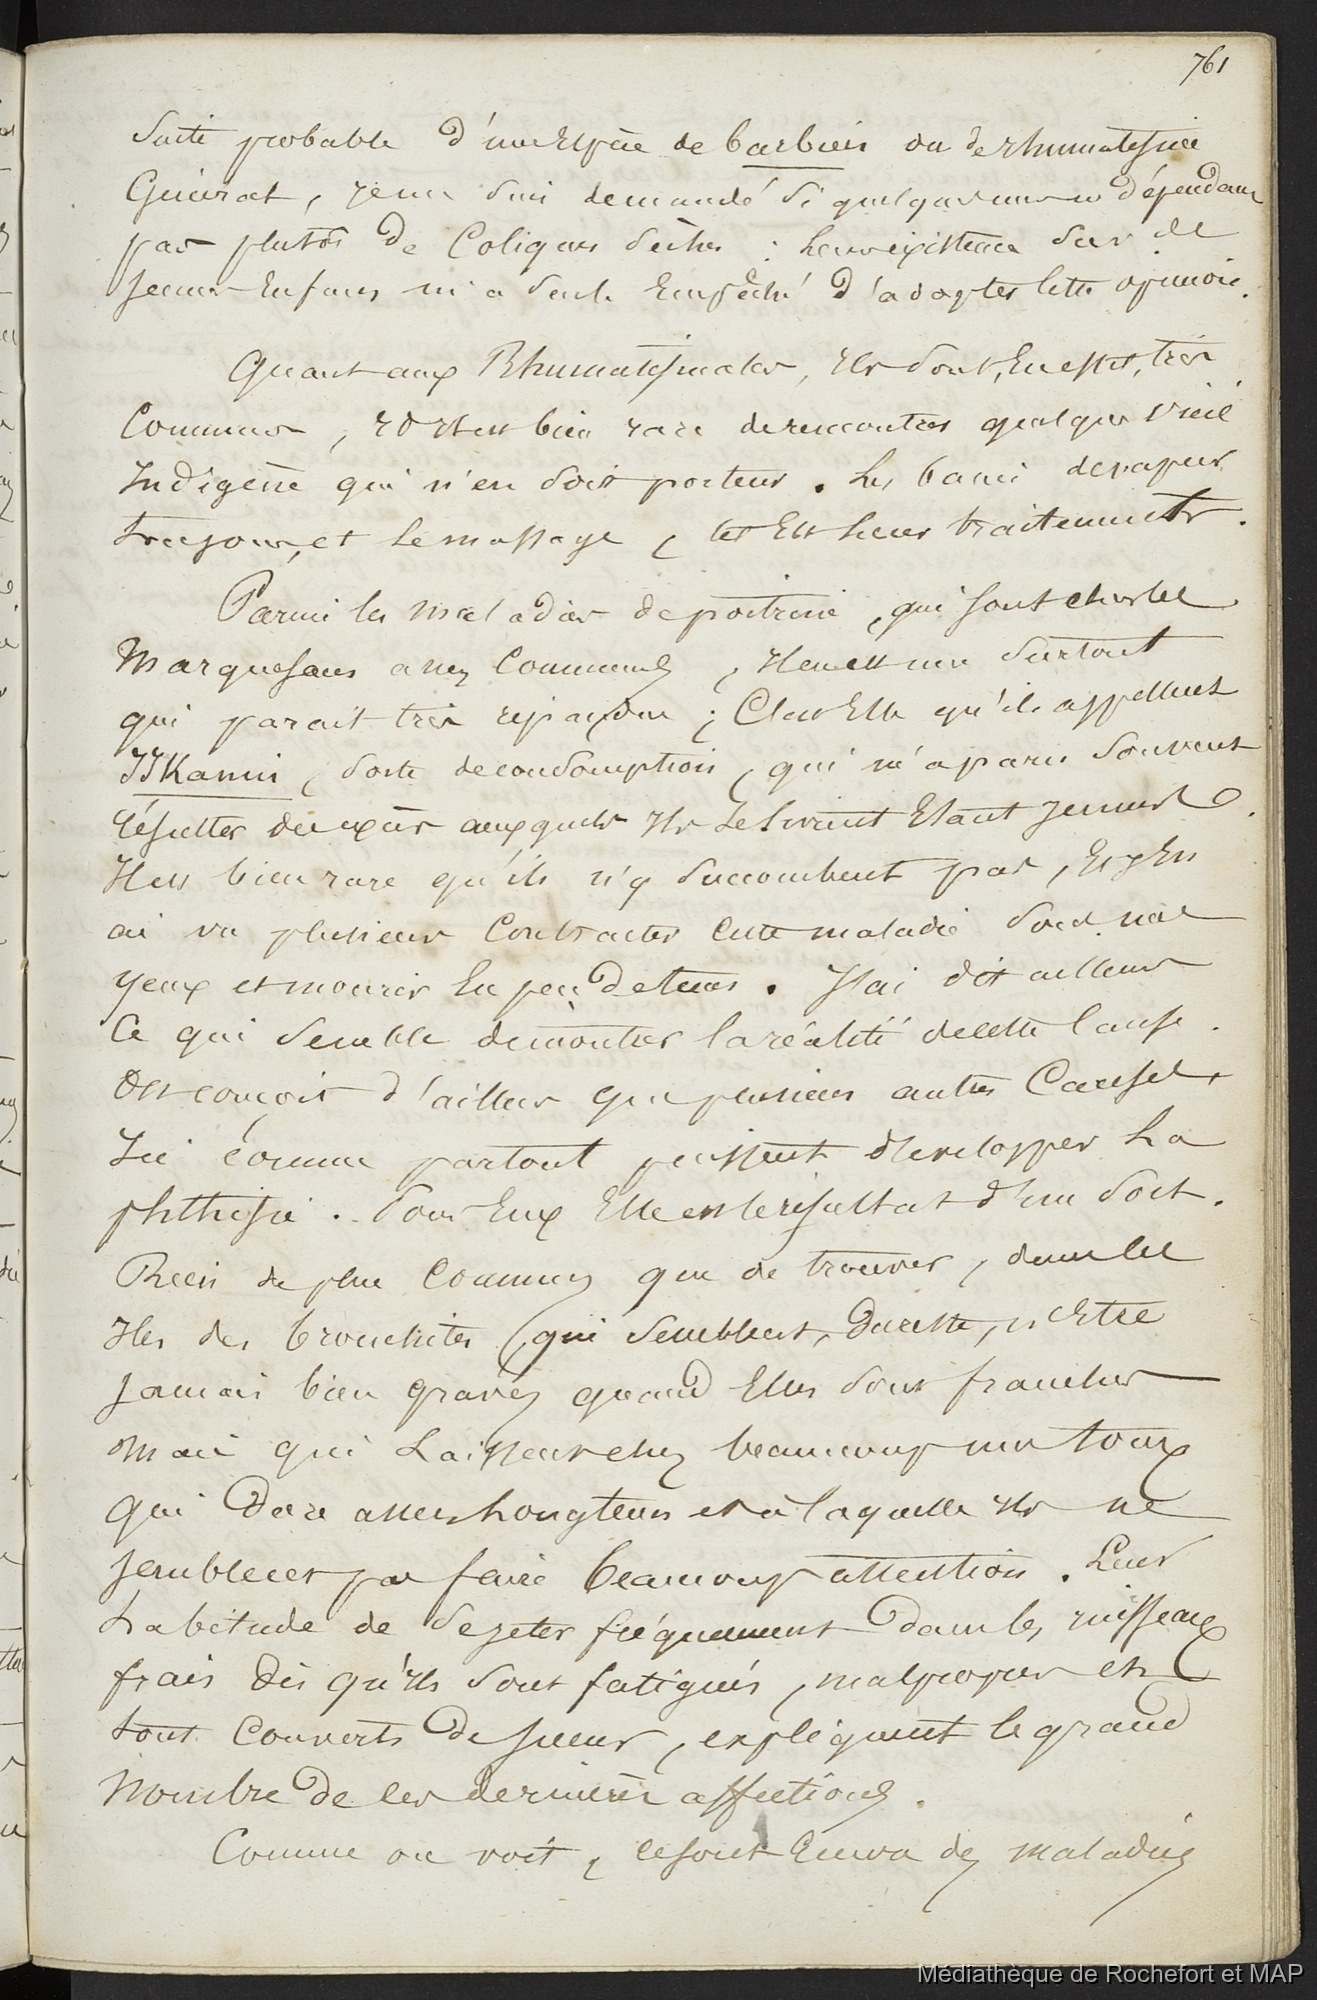 761
suite probable d'une espèce de barbiers ou de rhumatisme
Général, je me suis demandé si quelques uns ne dépendaient
pas plutôt de Coliques sèches : leur existence sur de
jeunes Enfans m'a seule Empêché d'adopter cette opinion.
Quant aux Rhumatismales, Ils sont, En effet, très
Communs, et Il est bien rare de rencontrer quelque vieil
Indigène qui n'en soit porteur. Les bains de vapeur
toujours, et le massage, tel Est leur traitement.
Parmi les maladies de poitrine, qui sont chez les
Marquesans assez Communes, Il en est une surtout
qui parait très répandue ; C'est Elle qu'ils appellent
Kamii, sorte de consomption, qui m'a paru souvent
résulter des excès auxquels Ils se livrent Etant jeunes.
Il est bien rare qu'ils n'y succombent pas, Et j'En
ai vu plusieurs Contracter cette maladie sous mes
yeux et mourir En peu de tems. J'ai dit ailleurs
Ce qui semble démontrer la réalité de cette Cause.
On conçoit d'ailleurs que plusieurs autres Causes,
Ici comme partout puissent développer la
phthisie. Pour Eux Elle est le résultat d'un sort.
Rien de plus Commun que de trouver, dans les
Iles des bronchites (qui semblent, du reste, n'Etre
jamais bien graves quand Elles sont franches
mais qui laissent chez beaucoup une toux
qui dure assez longtems et à laquelle Ils ne
semblent pas faire beaucoup attention. Leur
habitude de se jeter fréquemment dans les ruisseaux
frais dès qu'Ils sont fatigués, malpropres et
tout Couverts de sueur, expliquent le grand
Nombre de ces dernières affections.
Comme on voit, ce sont Encore des maladies
Médiathèque de Rochefort et MAP